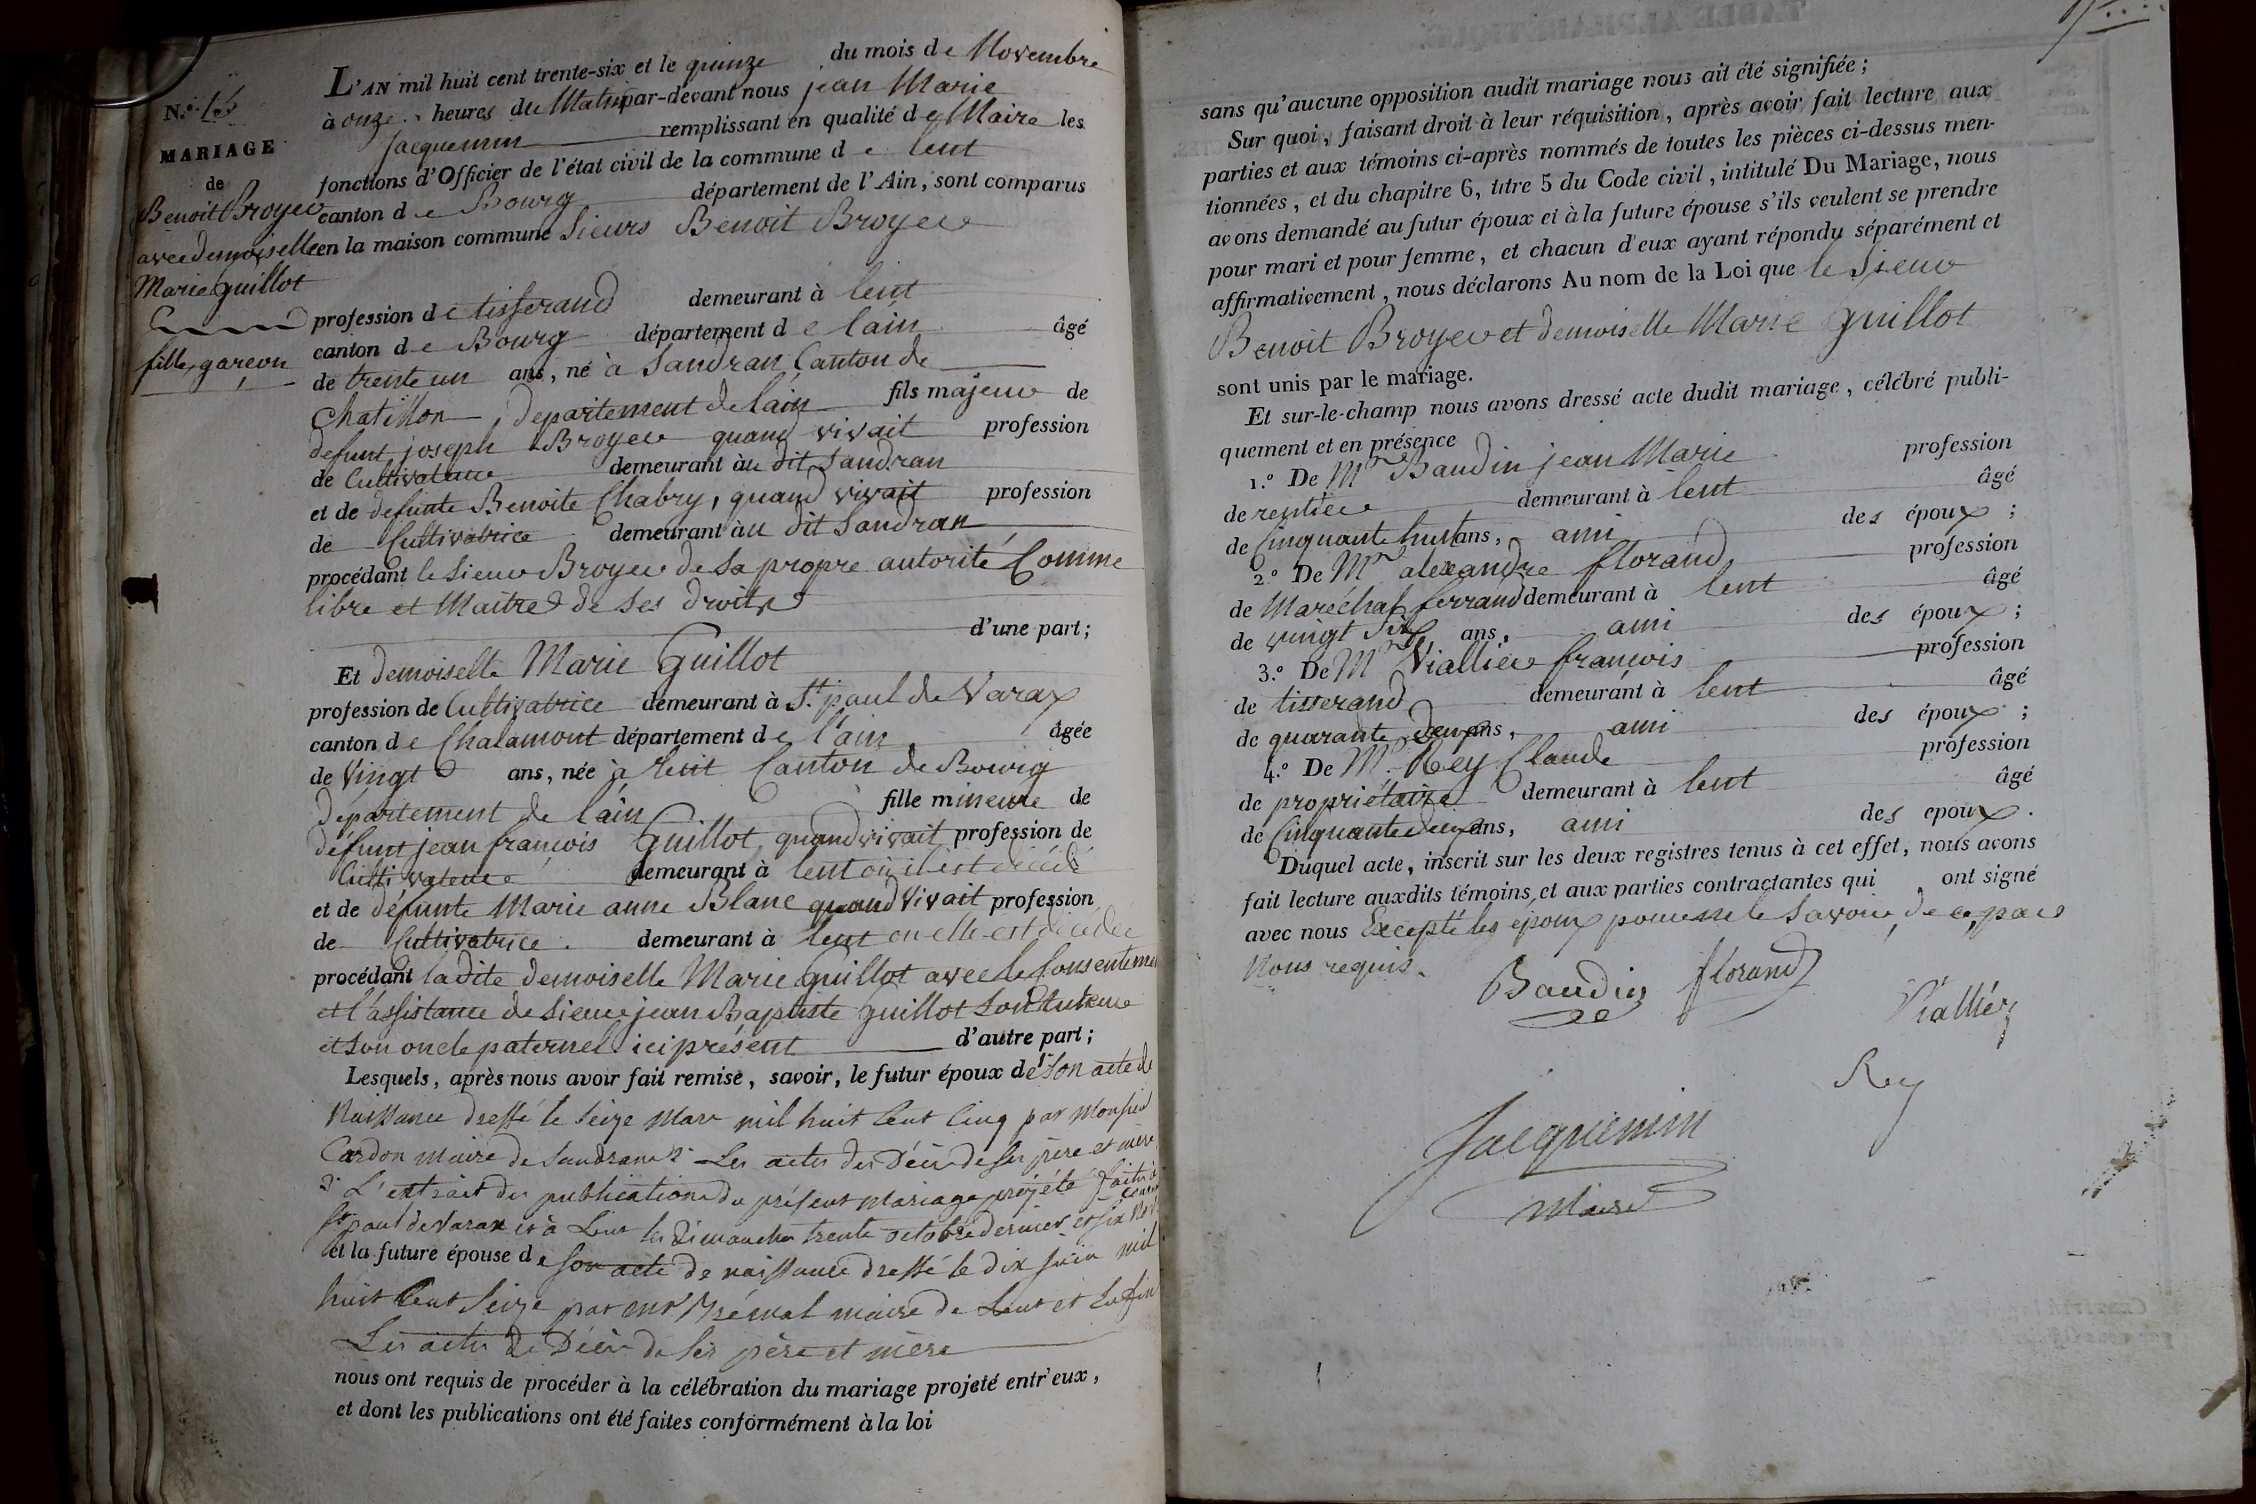 N.º
MARIAGE
de
Benoit Broyer
avec demoiselle
Marie Guillot
fille, garçon
L'AN mil huit cent trente-six et le quinze du mois de Novembre
à onze heures du Matin par-devant nous jean Marie
Jacquemin remplissant en qualité de Maire les
fonctions d'Officier de l'état civil de la commune de lent
canton de Bourg département de l'Ain, sont comparus
en la maison commune Sieurs Benoit Broyer
profession de tisserand demeurant à lent
canton de Bourg département de lain âgé
de trente un ans, né à Sandran Canton de
Chatillon departement de lain fils majeur de
defunt joseph Broyer quand vivait profession
de Cultivateur demeurant au dit Sandran
et de defunte Benoite Chabry, quand vivait profession
de Cultivatrice demeurant au dit Sandran
procédant le Sieur Broyer de sa propre autorité Comme
libre et Maitre de ses droits
d'une part;
Et demoiselle Marie Guillot
profession de Cultivatrice demeurant à St. paul de Varax
canton de Chalamont département de l'ain âgée
de Vingt ans, née à lent Canton de Bourg
département de lain fille mineure de
défunt jean françois Guillot, quand vivait profession de
Cultivateur demeurant à lent où il est décédé
et de défunte Marie anne Blanc quand Vivait profession
de Cultivatrice demeurant à lent ou elle est décédée
procédant ladite demoiselle Marie Guillot avec le Consentement
et l'assistance de Sieur jean Baptiste Guillot Son tuteur
et Son oncle paternel ici présent d'autre part;
Lesquels, après nous avoir fait remise, savoir, le futur époux de 1º Son acte de
Naissance dressé le Seize Mars mil huit Cent Cinq par Monsieur
Cardon Maire de Sandrans 2º Les actes de Décès de ses père et mère
3º L'extrait des publications du présent Mariage projeté faites à
St paul de Varax et à Lent les Dimanches trente octobre dernier et six
et la future épouse de son acte de naissance dressé le dix juin mil
huit Cent Seize par Mr maire de Lent et Enfin
Les actes de Décès de ses père et mère
nous ont requis de procéder à la célébration du mariage projeté entr'eux,
et dont les publications ont été faites conformément à la loi
sans qu'aucune opposition audit mariage nous ait été signifiée;
Sur quoi, faisant droit à leur réquisition, après avoir fait lecture aux
parties et aux témoins ci-après nommés de toutes les pièces ci-dessus men-
tionnées, et du chapitre 6, titre 5 du Code civil, intitulé Du Mariage, nous
avons demandé au futur époux et à la future épouse s'ils veulent se prendre
pour mari et pour femme, et chacun d'eux ayant répondu séparément et
affirmativement, nous déclarons Au nom de la Loi que le Sieur
Benoit Broyer et demoiselle Marie Guillot
sont unis par le mariage.
Et sur-le-champ nous avons dressé acte dudit mariage, célébré publi-
quement et en présence
1.º De Mr Baudin jean Marie profession
de rentier demeurant à lent âgé
de Cinquante huit ans, ami des époux;
2.º De Mr alexandre florand profession
de Maréchal ferrand demeurant à lent âgé
de vingt Six ans, ami des époux;
3.º De Mr Viallier françois profession
de tisserand demeurant à lent âgé
de quarante deux ans, ami des époux;
4.º De Mr. Rey Claude profession
de propriétaire demeurant à lent âgé
de Cinquante deux ans, ami des epoux.
Duquel acte, inscrit sur les deux registres tenus à cet effet, nous avons
fait lecture auxdits témoins et aux parties contractantes qui ont signé
avec nous Excepté les époux pour ne le Savoir, de ce, par
Nous requis.
Baudin florand
Viallier
Rey
Jacquemin
Maire